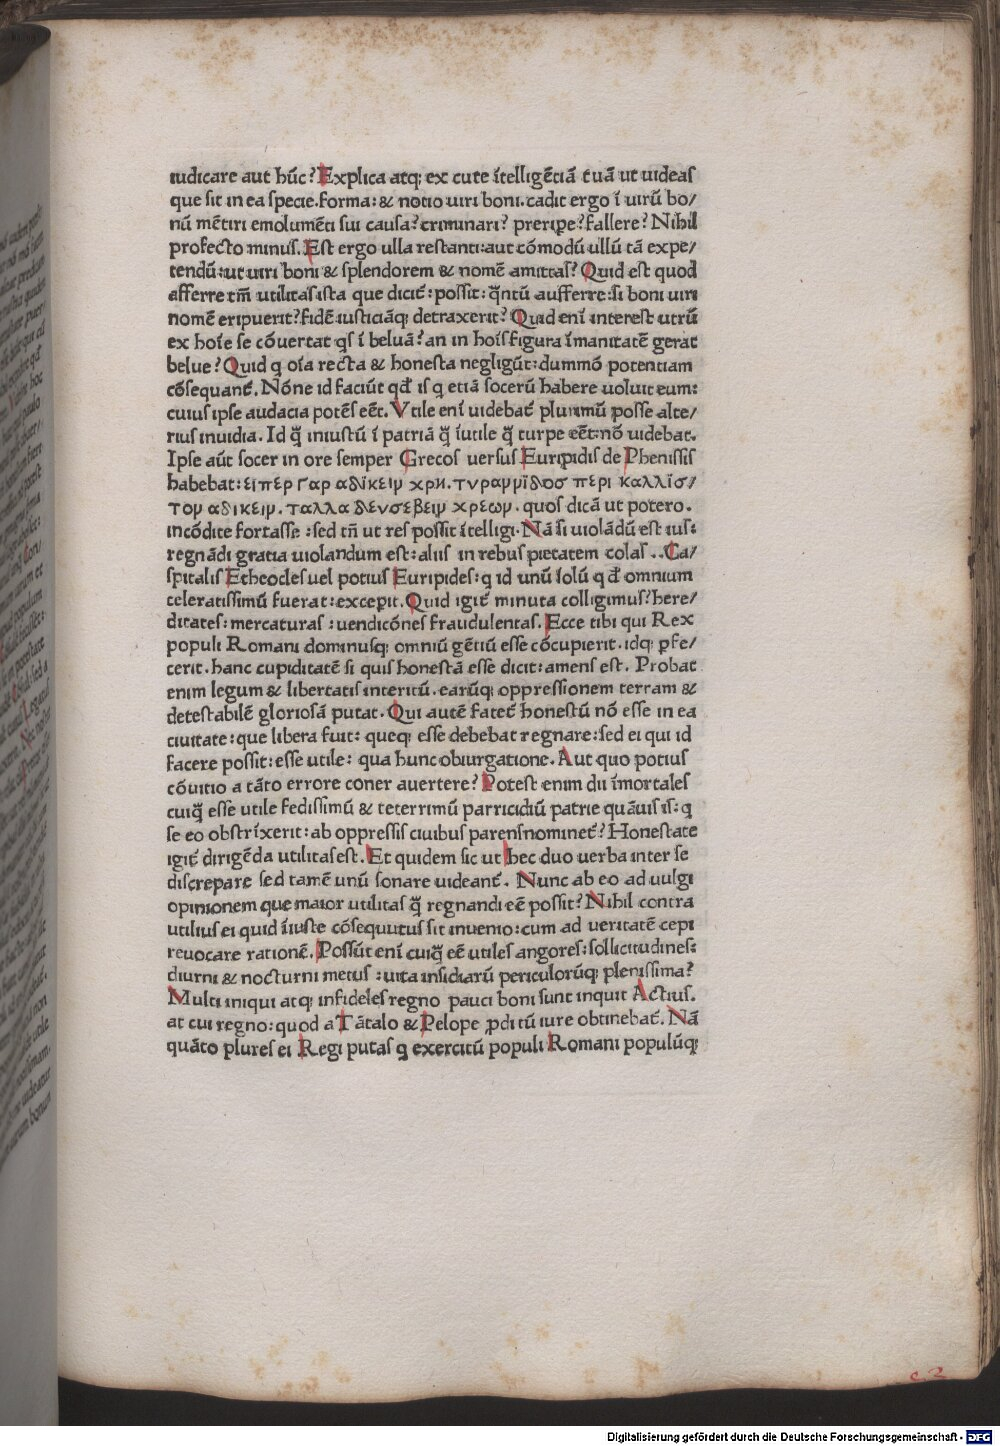 iudicare aut hūc? Explica atq; ex cute ītelligētiā tuā ut uideas
que sit in ea specie. forma: & notio uiri boni. cadit ergo ī uirū bo/
nū mētiri emolumēti sui causa? criminari? preripe? fallere? Nihil
profecto minus. Est ergo ulla res tanti: aut cōmodū ullū tā expe/
tendū: ut uiri boni & splendorem & nomē amittas? Quid est quod
afferre tm̄ utilitas ista que dicit̄: possit: q̄ntū aufferre: si boni uiri
nomē eripuerit? fidē iusticiāq; detraxerit? Quid enī interest utrū
ex hoīe se cōuertat qs ī beluā? an in hoīs figura īmanitatē gerat
belue? Quid q oīa recta & honesta negligūt: dummō potentiam
cōsequant̄. Nōne id faciūt qđ is q etiā socerū habere uoluit eum:
cuius ipse audacia potēs eēt. Vtile enī uidebat̄ plurimū posse alte/
rius inuidia. Id q̄ iniustū ī patriā q̄ īutile q̄ turpe eēt: nō uidebat.
Ipse aūt socer in ore semper Grecos uersus Euripidis de Phenissis
habebat: ειπερ γαρ αδικειν χρη. τυραννιδοσ περι καλλισ/
τον αδικειν. ταλλα δευσεβειν χρεων. quos dicā ut potero.
incōdite fortasse: sed tn̄ ut res possit ītelligi. Nā si uiolādū est ius:
regnādi gratia uiolandum est: aliis in rebus pietatem colas.. Ca/
spitalis Etheocles uel potius Euripides: q id unū solū qđ omnium
celeratissimū fuerat: excepit. Quid igit̄ minuta colligimus? here/
ditates: mercaturas: uendicōnes fraudulentas. Ecce tibi qui Rex
populi Romani dominusq; omniū gētiū esse cōcupierit. idq; ꝑfe/
cerit. hanc cupiditatē si quis honestā esse dicit: amens est. Probat
enim legum & libertatis interitū. earūq; oppressionem terram &
detestabilē gloriosā putat. Qui autē fatet̄ honestū nō esse in ea
ciuitate: que libera fuit: queq; esse debebat regnare: sed ei qui id
facere possit: esse utile: qua hunc obiurgatione. Aut quo potius
cōuitio a tāto errore coner auertere? Potest enim dii īmortales
cuiq̄ esse utile fedissimū & teterrimū parricidiū patrie quāuis is: q
se eo obstrīxerit: ab oppressis ciuibus parens nominet̄? Honestate
igit̄ dirigēda utilitas est. Et quidem sic ut hec duo uerba inter se
discrepare sed tamē unū sonare uideant̄. Nunc ab eo ad uulgi
opinionem que maior utilitas q̄ regnandi eē possit? Nihil contra
utilius ei quid īiuste cōsequutus sit inuenio: cum ad ueritatē cepi
reuocare rationē. Possūt enī cuiq̄ eē utiles angores: sollicitudines:
diurni & nocturni metus: uita insidiarū periculorūq; plenissima?
Multi iniqui atq; infideles regno pauci boni sunt inquit Actius.
at cui regno: quod a Tātalo & Pelope ꝓditū iure obtinebat̄. Nā
quāto plures ei Regi putas q exercitū populi Romani populūq;
c 2
Digitalisierung gefördert durch die Deutsche Forschungsgemeinschaft - DFG